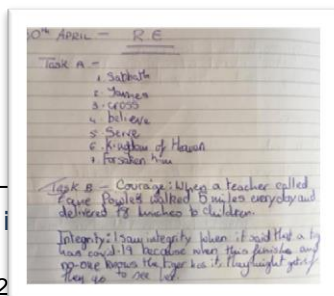 30th APRIL - R E
Task A -
1. Sabbath
2. James
3. cross
4. believe
5. Serve
6. Kingdom of Heaven
7. Forsaken him
Task B - Courage: When a teacher called
Zane Powles walked 5 miles everyday and
delivered 78 lunches to children.
Integrity: I saw integrity when it said that a tig
has covid-19 because when this finishes and
no-one knows the tiger has it, they might
then go to see
i
2